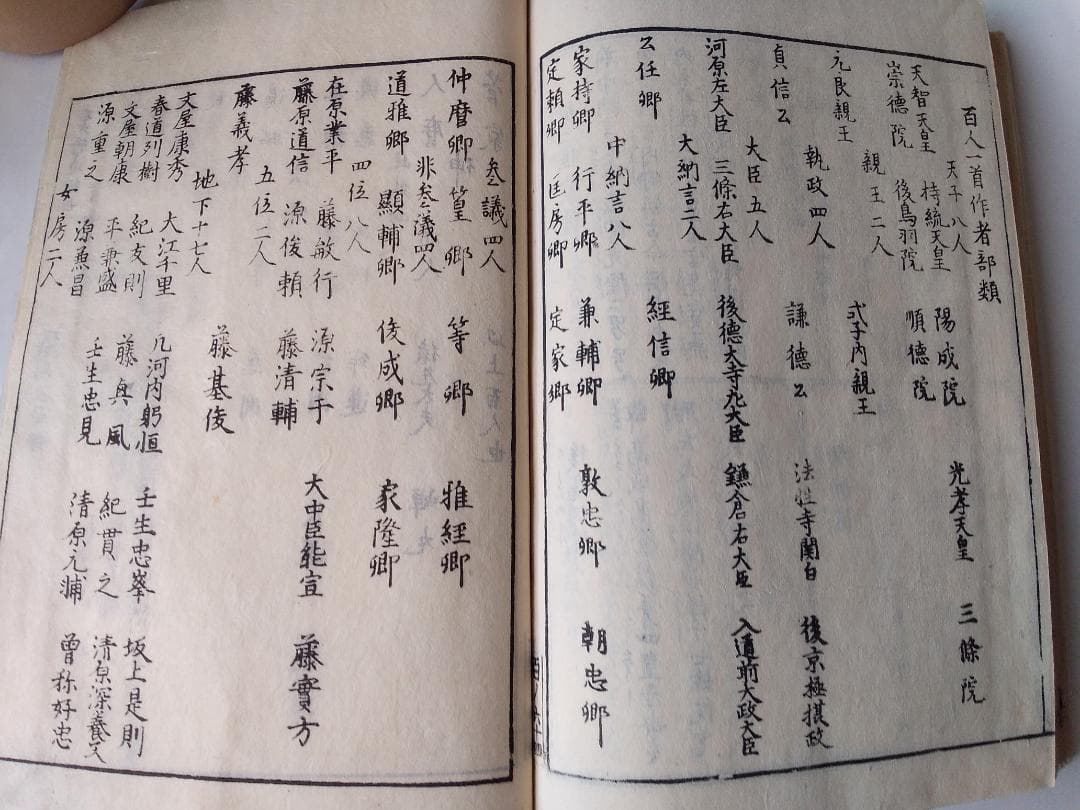 百人一首作者部類
天子八人
天智天皇 持統天皇 陽成院 光孝天皇 三條院
崇德院 後鳥羽院 順德院
親王二人
元良親王 式子内親王
執政四人
貞信公 謙德公 法性寺関白 後京極摂政
大臣五人
河原左大臣 三條右大臣 後德大寺左大臣 鎌倉右大臣 入道前大政大臣
大納言二人
公任卿 經信卿
中納言八人
家持卿 行平卿 兼輔卿 敦忠卿 朝忠卿
定頼卿 匡房卿 定家卿
叄議四人
仲麿卿 篁卿 等卿 雅經卿
非叄議四人
道雅卿 顯輔卿 俊成卿 家隆卿
四位八人
在原業平 藤敏行 源宗于 大中臣能宣 藤實方
藤原道信 源俊頼 藤清輔
五位二人
藤義孝 藤基俊
地下十七人
文屋康秀 大江千里 凢河内躬恒 壬生忠峯 坂上是則
春道列樹 紀友則 藤興風 紀貫之 清原深養父
文屋朝康 平兼盛 壬生忠見 清原元輔 曾祢好忠
源重之 源兼昌
女房二人